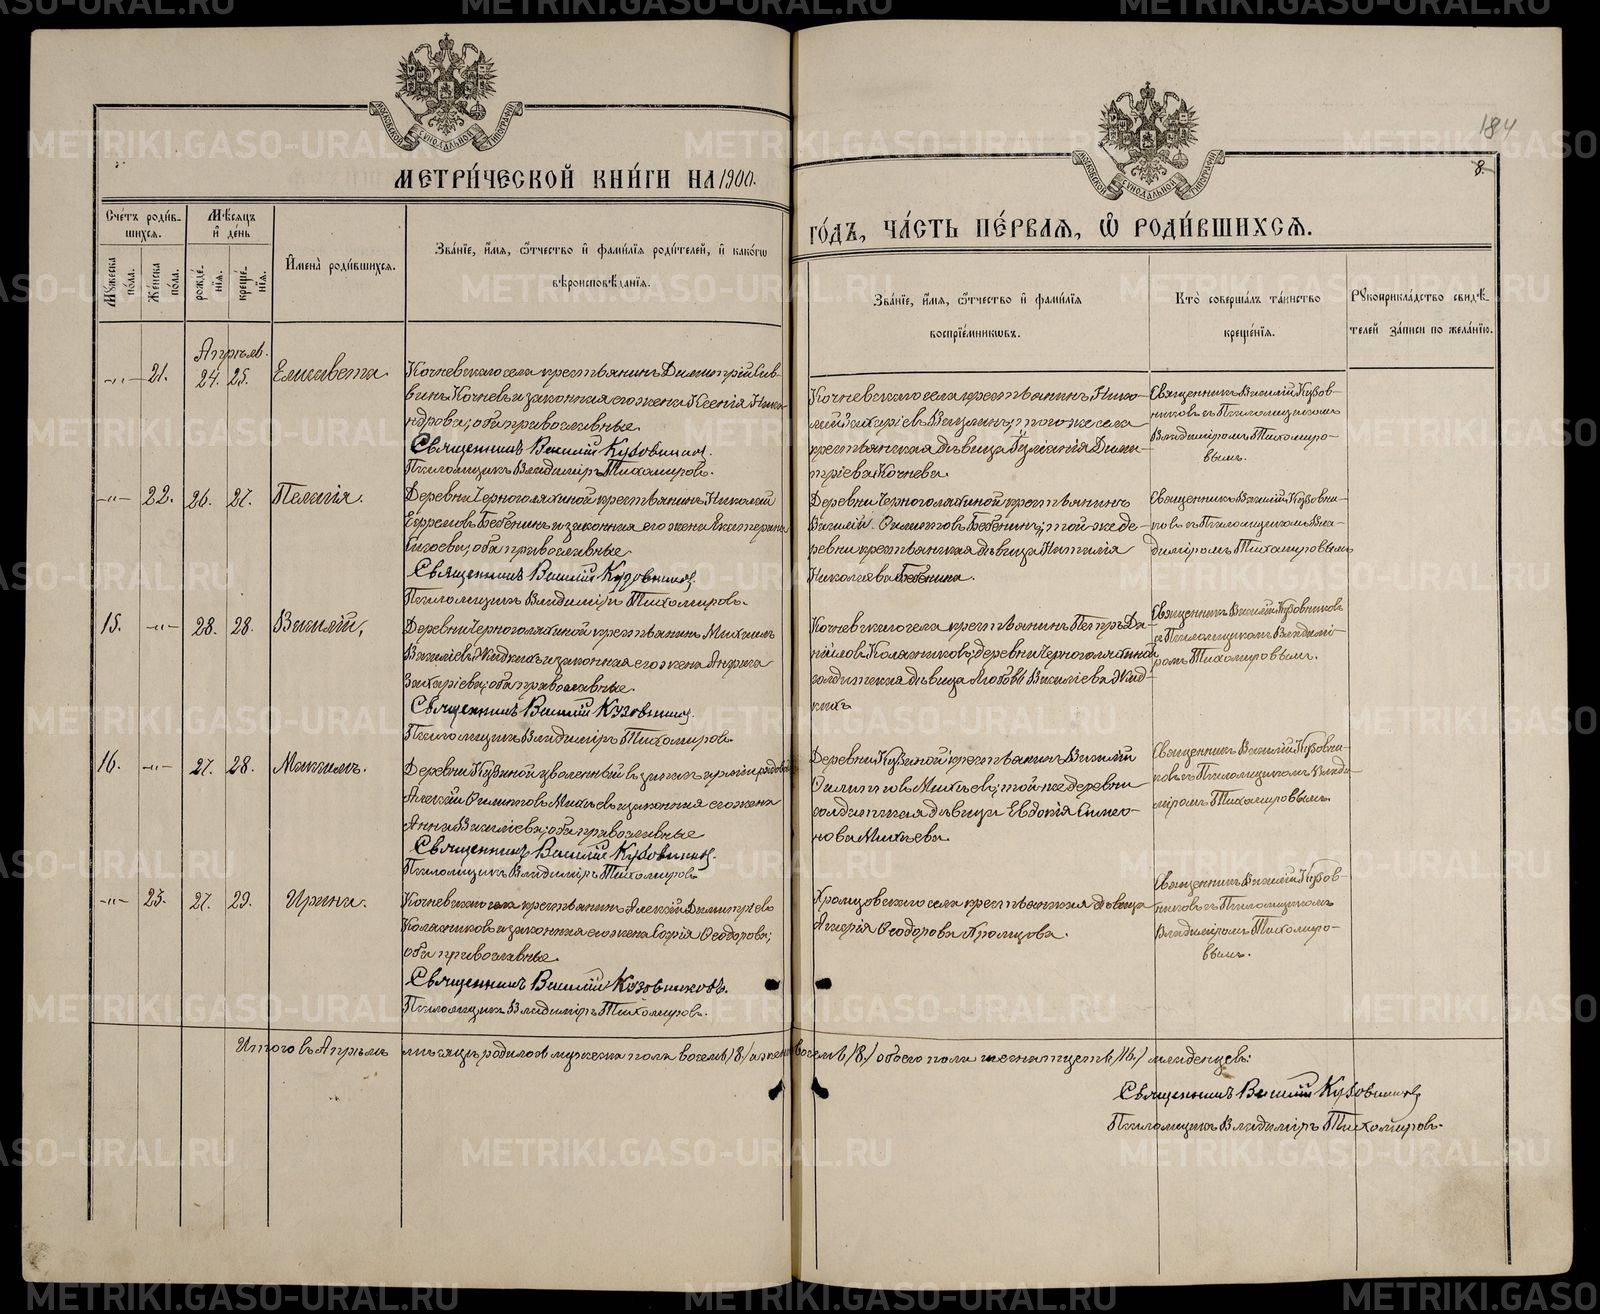 МЕТРИ́ЧЕСКОЙ КНИ́ГИ НА 1900.
ГО́ДЪ, ЧА́СТЬ ПЕ́РВАЯ, Ѽ РОДИ́ВШИХСЯ.
184
8.
МОСКОВСКОЙ СѴНОДАЛЬНОЙ ТИПОГРАФІИ
МОСКОВСКОЙ СѴНОДАЛЬНОЙ ТИПОГРАФІИ
Сче́тъ роди́в-
шихся.
Мѣ́сяцъ
и҆ де́нь
Мꙋ́жеска по́ла.
Же́нска по́ла.
рожде́-нїя.
креще́-нїя.
И҆мена̀ роди́вшихся.
Зва́нїе, и҆́мя, ѻ҆́тчество и҆ фами́лїя роди́телей, и҆ како́гѡ
вѣроисповѣ́данїя.
Зва́нїе, и҆́мя, ѻ҆́тчество и҆ фами́лїя
воспрїе́мникѡвъ.
Кто̀ соверша́лъ та́инство
креще́нїя.
Рꙋкоприкла́дство свидѣ́-
телей за́писи по жела́нїю.
Апрѣль.
-„- 21. 24. 25. Елисавета.
Кочневскаго села крестьянинъ Димитрій Сав-
винъ Кочневъ и законная его жена Ксенія Ника-
ндрова; оба православные.
Священникъ Василій Кузовниковъ.
Псаломщикъ Владиміръ Тихомировъ.
Кочневскаго села крестьянинъ Нико-
лай Захаріевъ; того же села
крестьянская дѣвица Дими-
тріева Кочнева.
Священникъ Василій Кузов-
никовъ съ Псаломщикомъ
Владиміромъ Тихомиро-
вымъ.
-„- 22. 26. 27. Пелагія.
Деревни Черноголяхиной крестьянинъ Николай
Ефремовъ Бебенинъ и законная его жена Екатерина
оба православные
Священникъ Василій Кузовниковъ.
Псаломщикъ Владиміръ Тихомировъ.
Деревни Черноголяхиной крестьянинъ
Василій Филиповъ Бебенинъ; той же де-
ревни крестьянская дѣвица Наталія
Николаева Бебенина.
Священникъ Василій Кузовни-
ковъ съ Псаломщикомъ Вла-
диміромъ Тихомировымъ
15. -„- 28. 28. Василій,
Деревни Черноголяхиной крестьянинъ Михаилъ
Василіевъ Жидкихъ и законная его жена Анфиса
Захаріева; оба православные.
Священникъ Василій Кузовниковъ.
Псаломщикъ Владиміръ Тихомировъ.
Кочневскаго села крестьянинъ Петръ Да-
ниловъ Колясниковъ; деревни Черноголяхиной
солдатская дѣвица Любовь Василіева Жид-
кихъ
Священникъ Василій Кузовниковъ
съ Псаломщикомъ Владимі-
ромъ Тихомировымъ.
16. -„- 27. 28. Михаилъ.
Деревни Кузиной уволенный въ запасъ арміи рядовой
Алексій Филиповъ Михѣевъ и законная его жена
Анна Василіева; оба православные
Священникъ Василій Кузовниковъ.
Псаломщикъ Владиміръ Тихомировъ
Деревни Кузиной крестьянинъ Василій
Филиповъ Михѣевъ; той же деревни
солдатская дѣвица Евдокія Симео-
нова Михѣева.
Священникъ Василій Кузовни-
ковъ съ Псаломщикомъ Влади-
міромъ Тихомировымъ.
-„- 23. 27. 29. Ирина.
Кочневскаго села крестьянинъ Алексій Димитріевъ
Колясниковъ и законная его жена Софія Ѳеодорова;
оба православные.
Священникъ Василій Кузовниковъ.
Псаломщикъ Владиміръ Тихомировъ.
Храмцовскаго села крестьянская дѣвица
Ѳеодорова Храмцова.
Священникъ Василій Кузов-
никовъ съ Псаломщикомъ
Владиміромъ Тихомиро-
вымъ.
Итого въ Апрѣлѣ мѣсяцѣ родилось мужеска пола восемь /8/ а женска восемь /8/ обоего пола шестнадцать /16./ младенцевъ:
Священникъ Василій Кузовниковъ
Псаломщикъ Владиміръ Тихомировъ.
METRIKI.GASO-URAL.RU